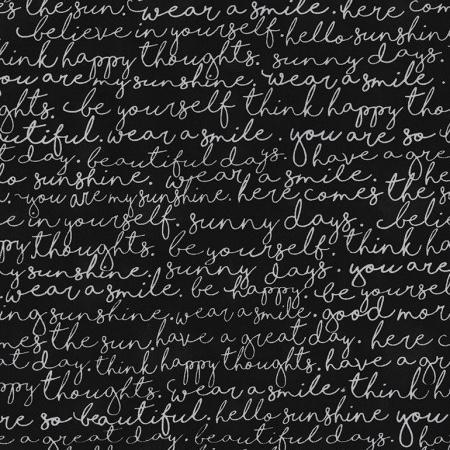 es the sun. wear a smile. here com
believe in yourself. hello sunshine
hink happy thoughts. sunny days.
you are my sunshine. wear a smile.
ghts. be yourself think happy tho
autiful. wear a smile. you are so b
t day. beautiful days. have a grea
lo sunshine. wear a smile. he
. you are my sunshine. here comes the s
e in yourself. sunny days. belie
ppy thoughts. be yourself. think ha
y sunshine. sunny days. you are
wear a smile. be happy. be yourse
ing sunshine. wear a smile. good mor
mes the sun. have a great day. here c
at day. think happy thoughts. have a gr
ppy thoughts. wear a smile. think h
re so beautiful. hello sunshine you
e a great day. beautiful days. ha